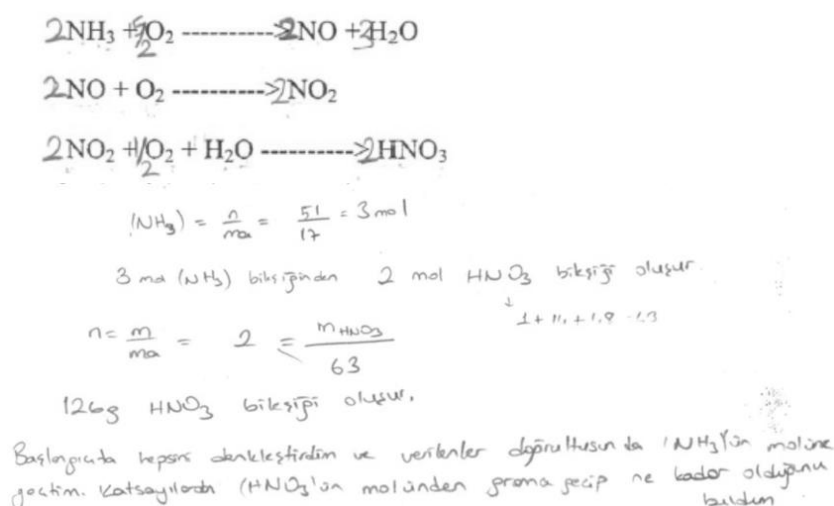 2NH₃ + 5/2 O₂ ----------> 2NO + 3H₂O
2NO + O₂ ----------> 2NO₂
2NO₂ + 1/2 O₂ + H₂O ----------> 2HNO₃
(NH₃) = n/ma = 51/17 = 3 mol
3 mol (NH₃) bileşiğinden 2 mol HNO₃ bileşiği oluşur.
↓
n = m/ma = 2 = mHNO₃/63
126g HNO₃ bileşiği oluşur.
Başlangıçta hepsini denkleştirdim ve verilenler doğrultusunda (NH₃)'ün molüne
geçtim. Katsayılardan (HNO₃'ün molünden grama geçip ne kadar olduğunu
buldum